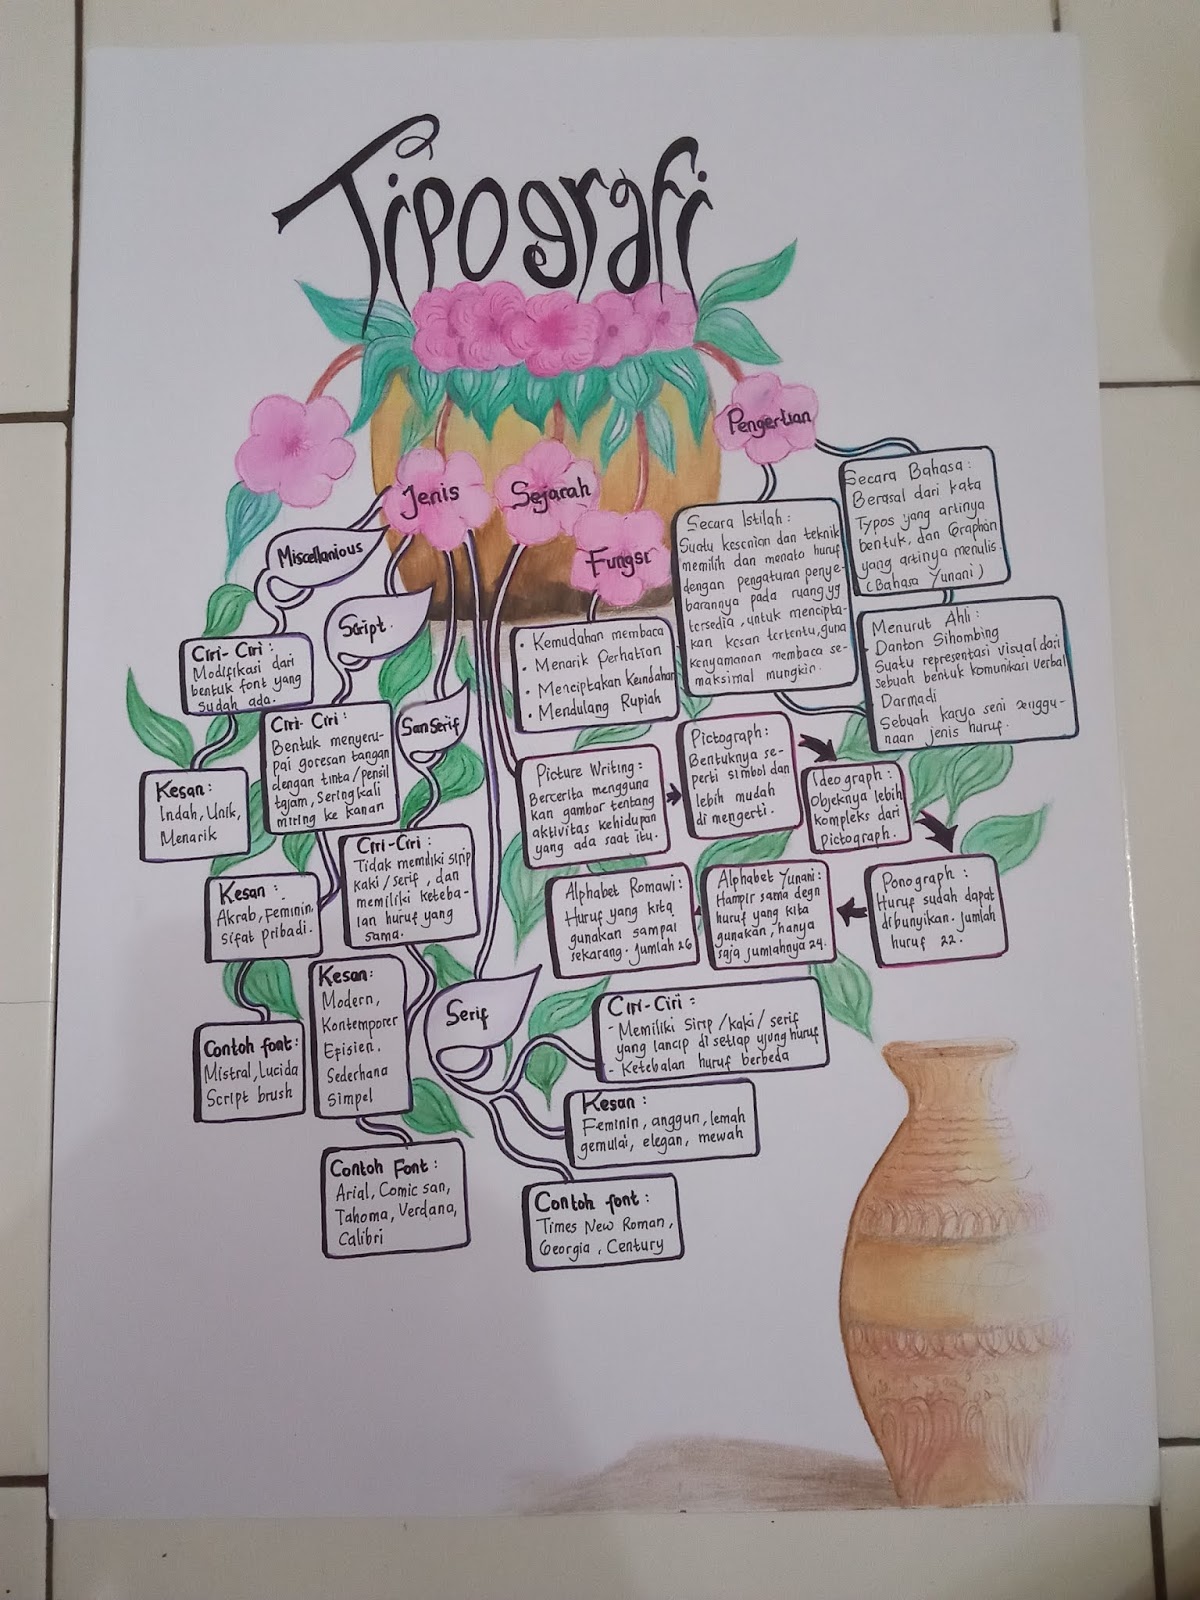 Tipografi
Pengertian
Secara Bahasa :
Berasal dari kata
Typos yang artinya
bentuk, dan Graphon
yang artinya menulis.
(Bahasa Yunani)
Secara Istilah :
Suatu kesenian dan teknik
memilih dan menata huruf
dengan pengaturan penye-
barannya pada ruang yg
tersedia, untuk mencipta-
kan kesan tertentu, guna
kenyamanan membaca se-
maksimal mungkin.
Menurut Ahli :
- Danton Sihombing
Suatu representasi visual dari
sebuah bentuk komunikasi verbal
- Darmadi
Sebuah karya seni penggu-
naan jenis huruf.
Fungsi
• Kemudahan membaca
• Menarik Perhatian
• Menciptakan Keindahan
• Mendulang Rupiah
Sejarah
Picture Writing :
Bercerita mengguna
kan gambar tentang
aktivitas kehidupan
yang ada saat itu.
Pictograph :
Bentuknya se-
perti simbol dan
lebih mudah
di mengerti.
Ideograph :
Objeknya lebih
kompleks dari
Pictograph.
Ponograph :
Huruf sudah dapat
dibunyikan. Jumlah
huruf 22.
Alphabet Yunani :
Hampir sama degn
huruf yang kita
gunakan, hanya
saja jumlahnya 24.
Alphabet Romawi :
Huruf yang kita
gunakan sampai
sekarang. Jumlah 26
Jenis
Miscellanious
Ciri- Ciri :
Modifikasi dari
bentuk font yang
sudah ada.
Kesan :
Indah, Unik,
Menarik
Script.
Ciri- Ciri :
Bentuk menyeru-
pai goresan tangan
dengan tinta/pensil
tajam, Seringkali
miring ke kanan
Kesan :
Akrab, Feminin,
sifat pribadi.
Contoh font :
Mistral, Lucida
Script brush
San Serif
Ciri-Ciri :
Tidak memiliki sirip
kaki/serif, dan
memiliki keteba-
lan huruf yang
sama.
Kesan :
Modern,
Kontemporer
Episien.
Sederhana
Simpel
Contoh Font :
Arial, Comic san,
Tahoma, Verdana,
Calibri
Serif
Ciri-Ciri :
- Memiliki Sirip /kaki/ serif
yang lancip di setiap ujung huruf
- Ketebalan huruf berbeda
Kesan :
Feminin, anggun, lemah
gemulai, elegan, mewah
Contoh font :
Times New Roman,
Georgia, Century